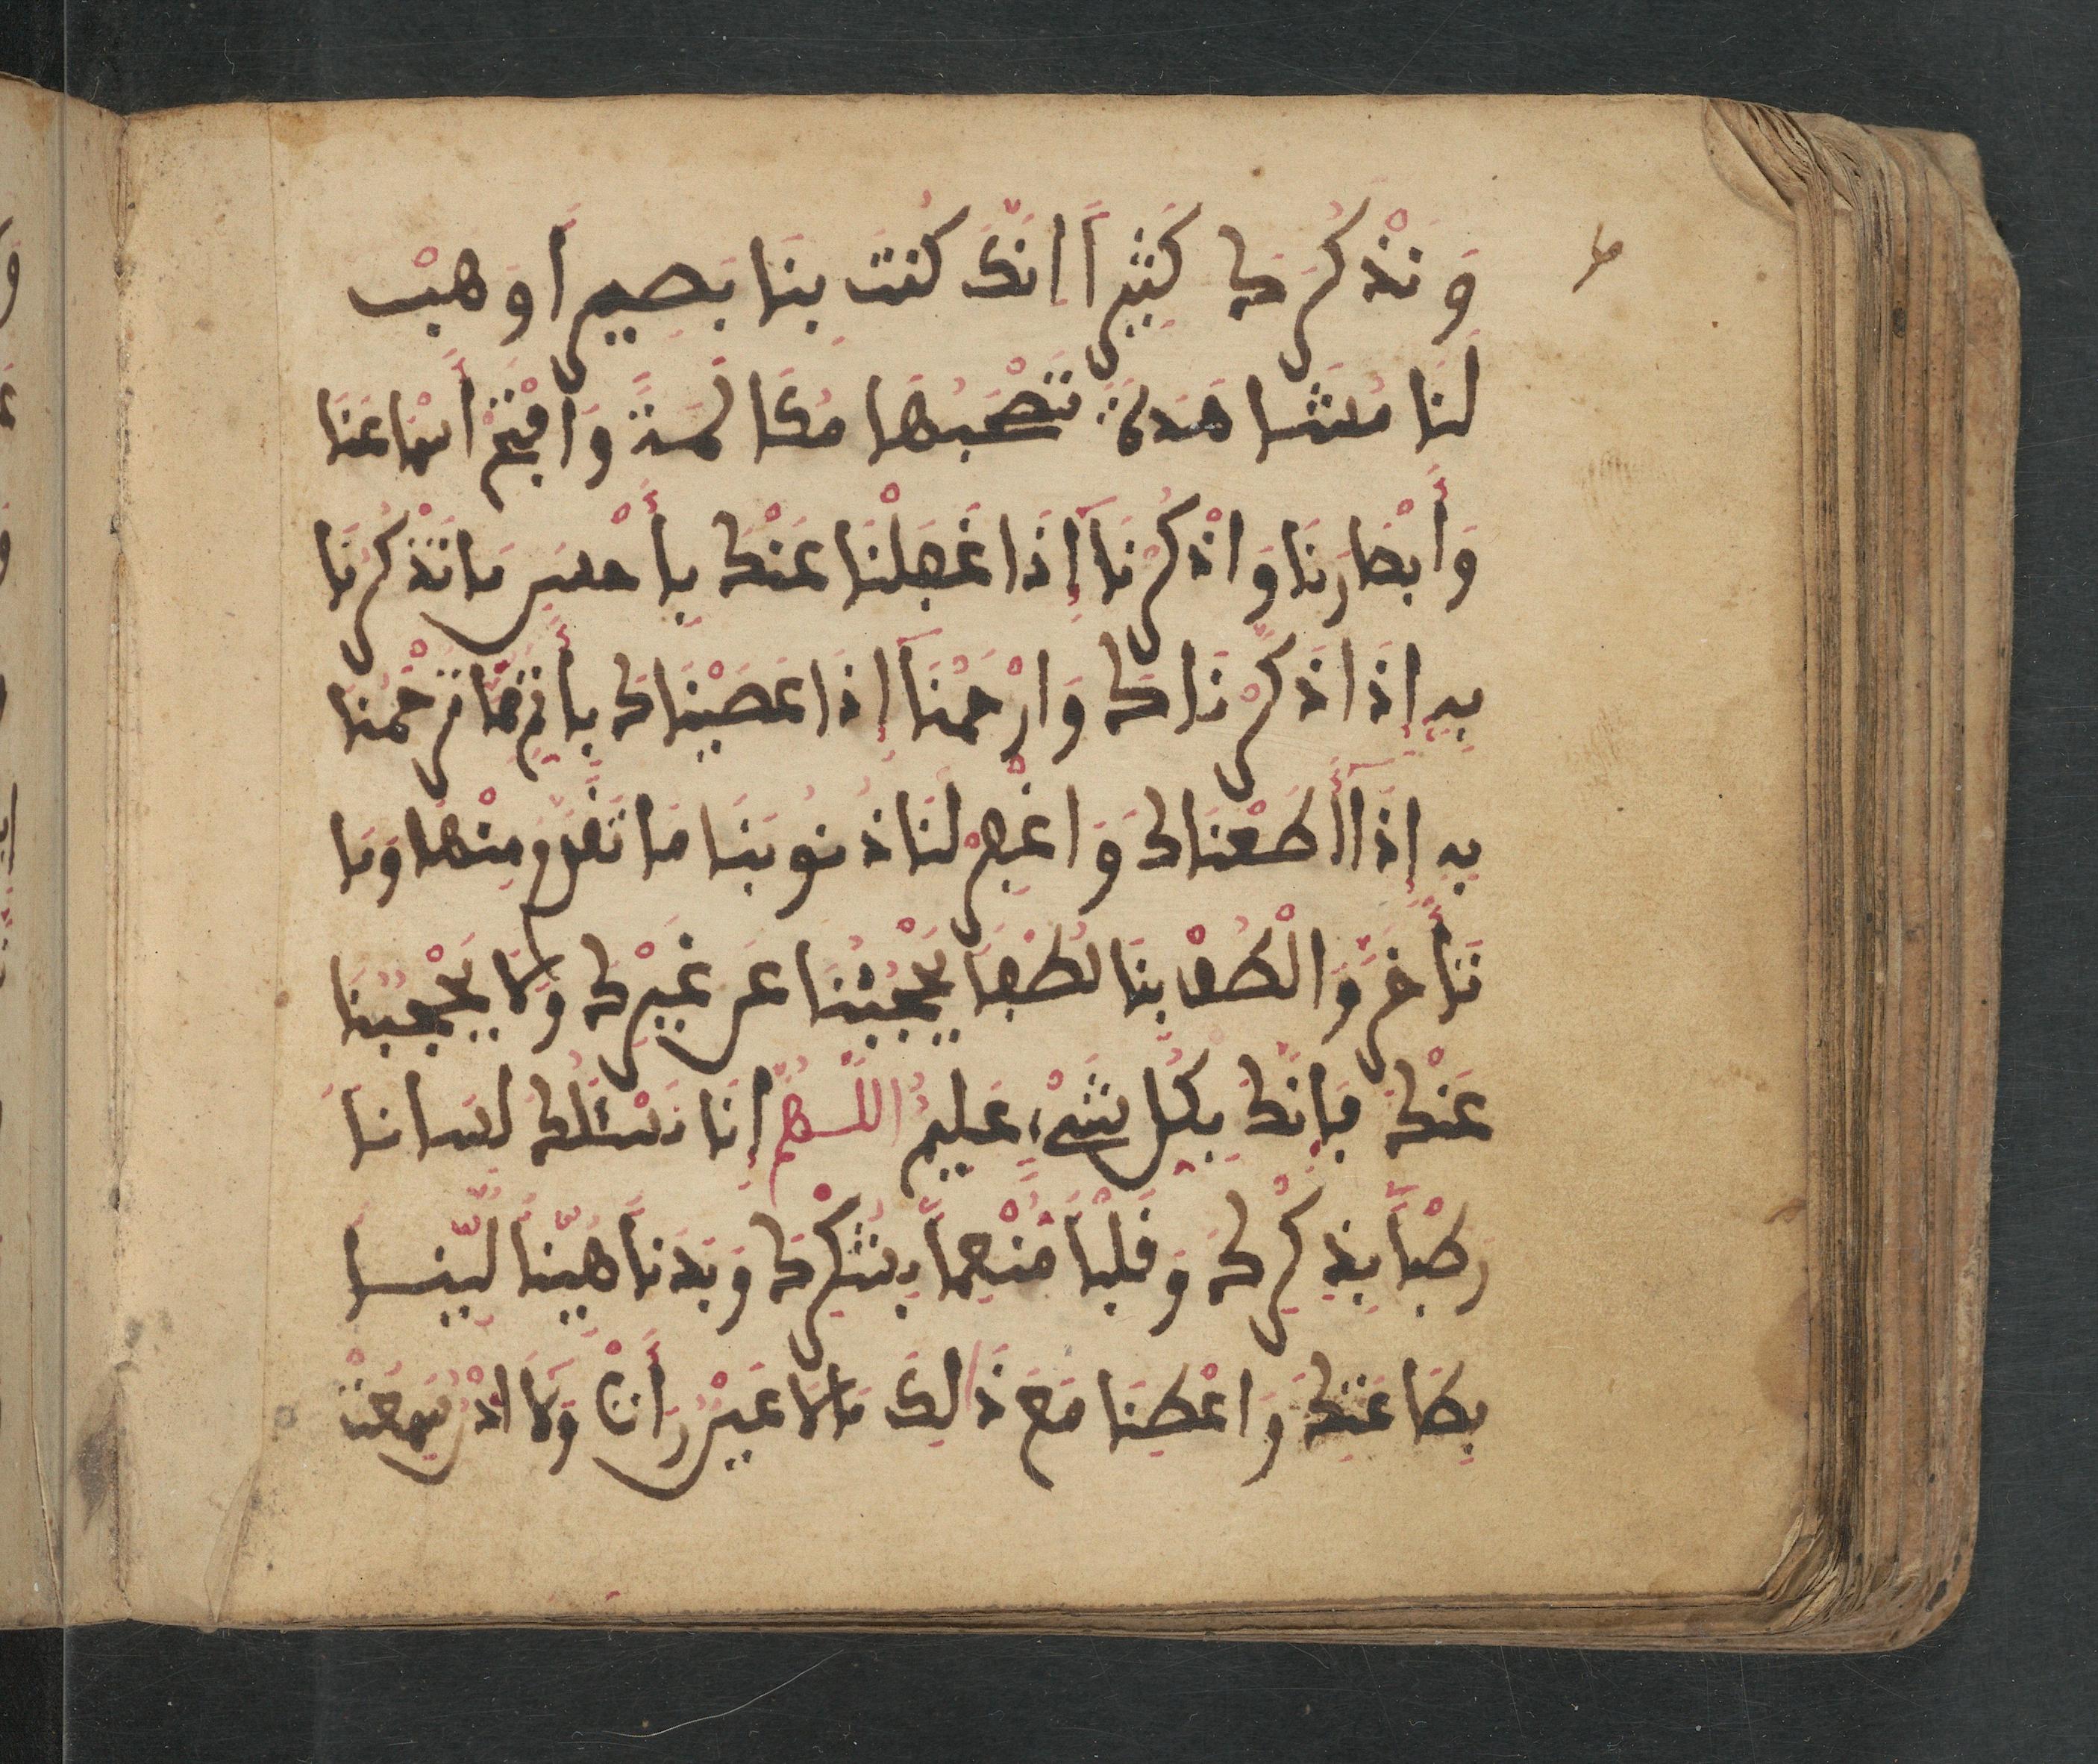 وَنَذْكُرَكَ كَثِيراً اِنَّكَ كُنْتَ بِنَا بَصِيراً وَهَبْ
لَنَا مُشَاهَدَةً تَصْحَبُهَا مُكَالَمَةً وَافْتَحْ أَسْمَاعَنَا
وَأَبْصَارَنَا وَاذْكُرْنَا إِذَا غَفَلْنَا عَنْكَ بِأَحْسَنِ مَا تَذْكُرُنَا
بِهِ إِذَا ذَكَرْنَاكَ وَارْحَمْنَا إِذَا عَصَيْنَاكَ بِأَتَمِّ مَا تَرْحَمُنَا
بِهِ إِذَا أَطَعْنَاكَ وَاغْفِرْ لَنَا ذُنُوبَنَا مَا تَقَدَّمَ مِنْهَا وَمَا
تَأَخَّرَ وَالْطُفْ بِنَا لُطْفاً يَحْجُبُنَا عَن غَيْرِكَ وَلَا يَحْجُبُنَا
عَنْكَ فَإِنَّكَ بِكُلِّ شَيْءٍ عَلِيمٌ اللَّهُمَّ إِنَّا نَسْئَلُكَ لِسَاناً
رَطْباً بِذِكْرِكَ وَقَلْباً مُنْعَماً بِشُكْرِكَ وَبَدَناً هَيِّناً لَيِّناً
بِطَاعَتِكَ وَاعْطِنَا مَعَ ذَالِكَ مَا لَا عَيْنٌ رَأَتْ وَلَا اُذُنٌ سَمِعَتْ